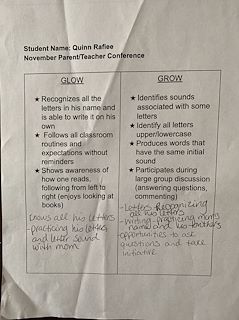 Student Name: Quinn Rafiee
November Parent/Teacher Conference
GLOW
★ Recognizes all the
letters in his name and
is able to write it on his
own
★ Follows all classroom
routines and
expectations without
reminders
★ Shows awareness of
how one reads,
following from left to
right (enjoys looking at
books)
knows all his letters
-practicing his letters
and letter sound
with mom
GROW
★ Identifies sounds
associated with some
letters
★ Identify all letters
upper/lowercase
★ Produces words that
have the same initial
sound
★ Participates during
large group discussion
(answering questions,
commenting)
-Letters Recognizing
all his letters
-Writing-practicing mom's
name and his brothers
-opportunities to ask
questions and take
initiative